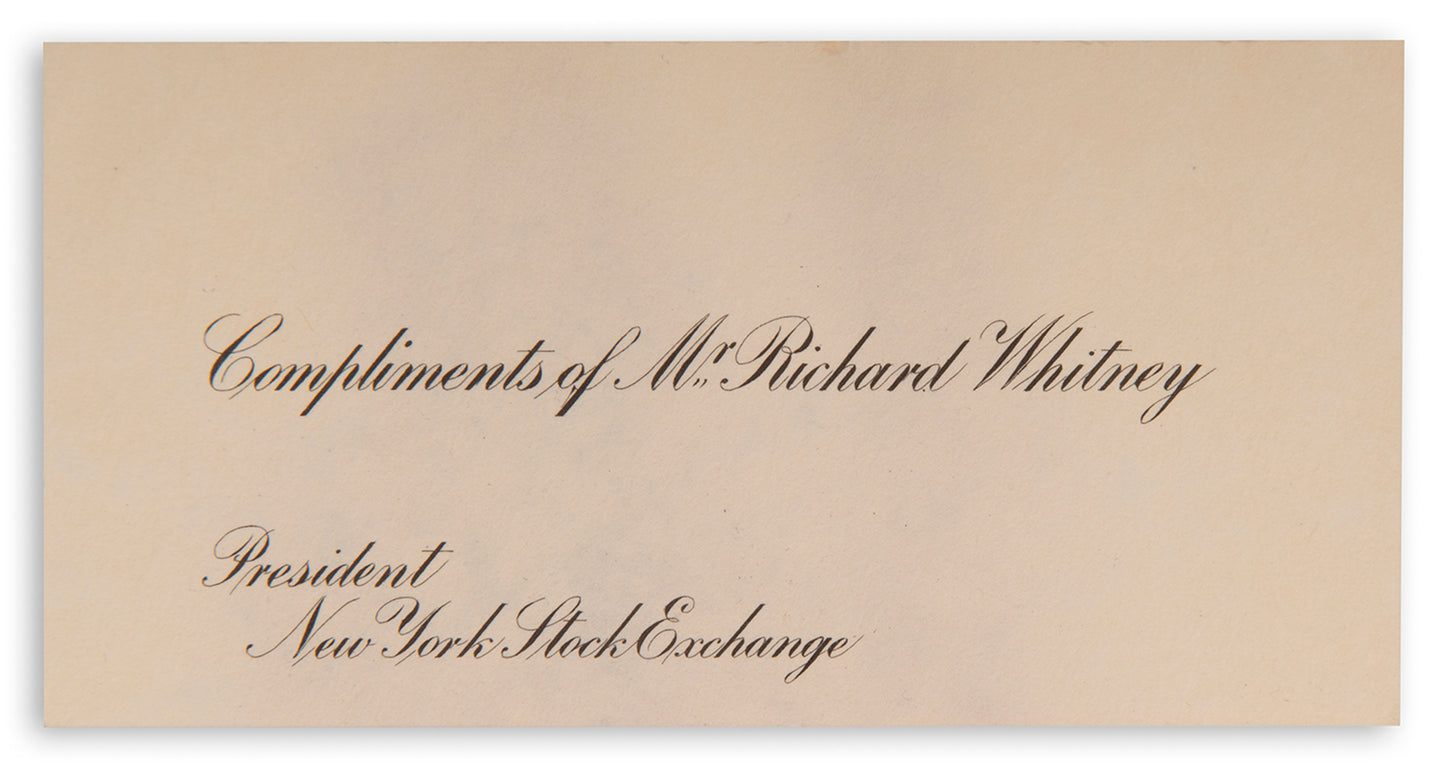 Compliments of Mr. Richard Whitney
President
New York Stock Exchange